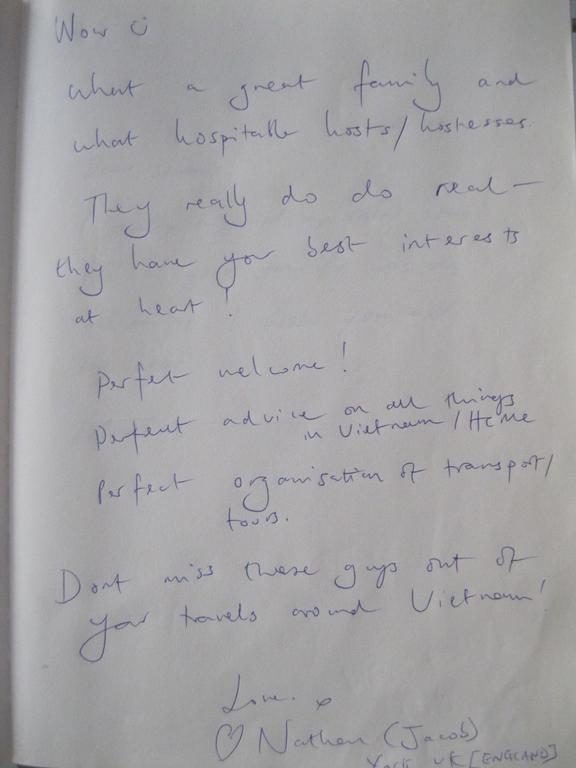 Wow ☺
What a great family and
what hospitable hosts/hostesses.
They really do do real —
they have your best interests
at heart!
Perfect welcome!
Perfect advice on all things
in Vietnam / HCMC
Perfect organisation of transport/
tours.
Dont miss these guys out of
your travels around Vietnam!
Love. x
♡ Nathan (Jacob)
York UK [ENGLAND]